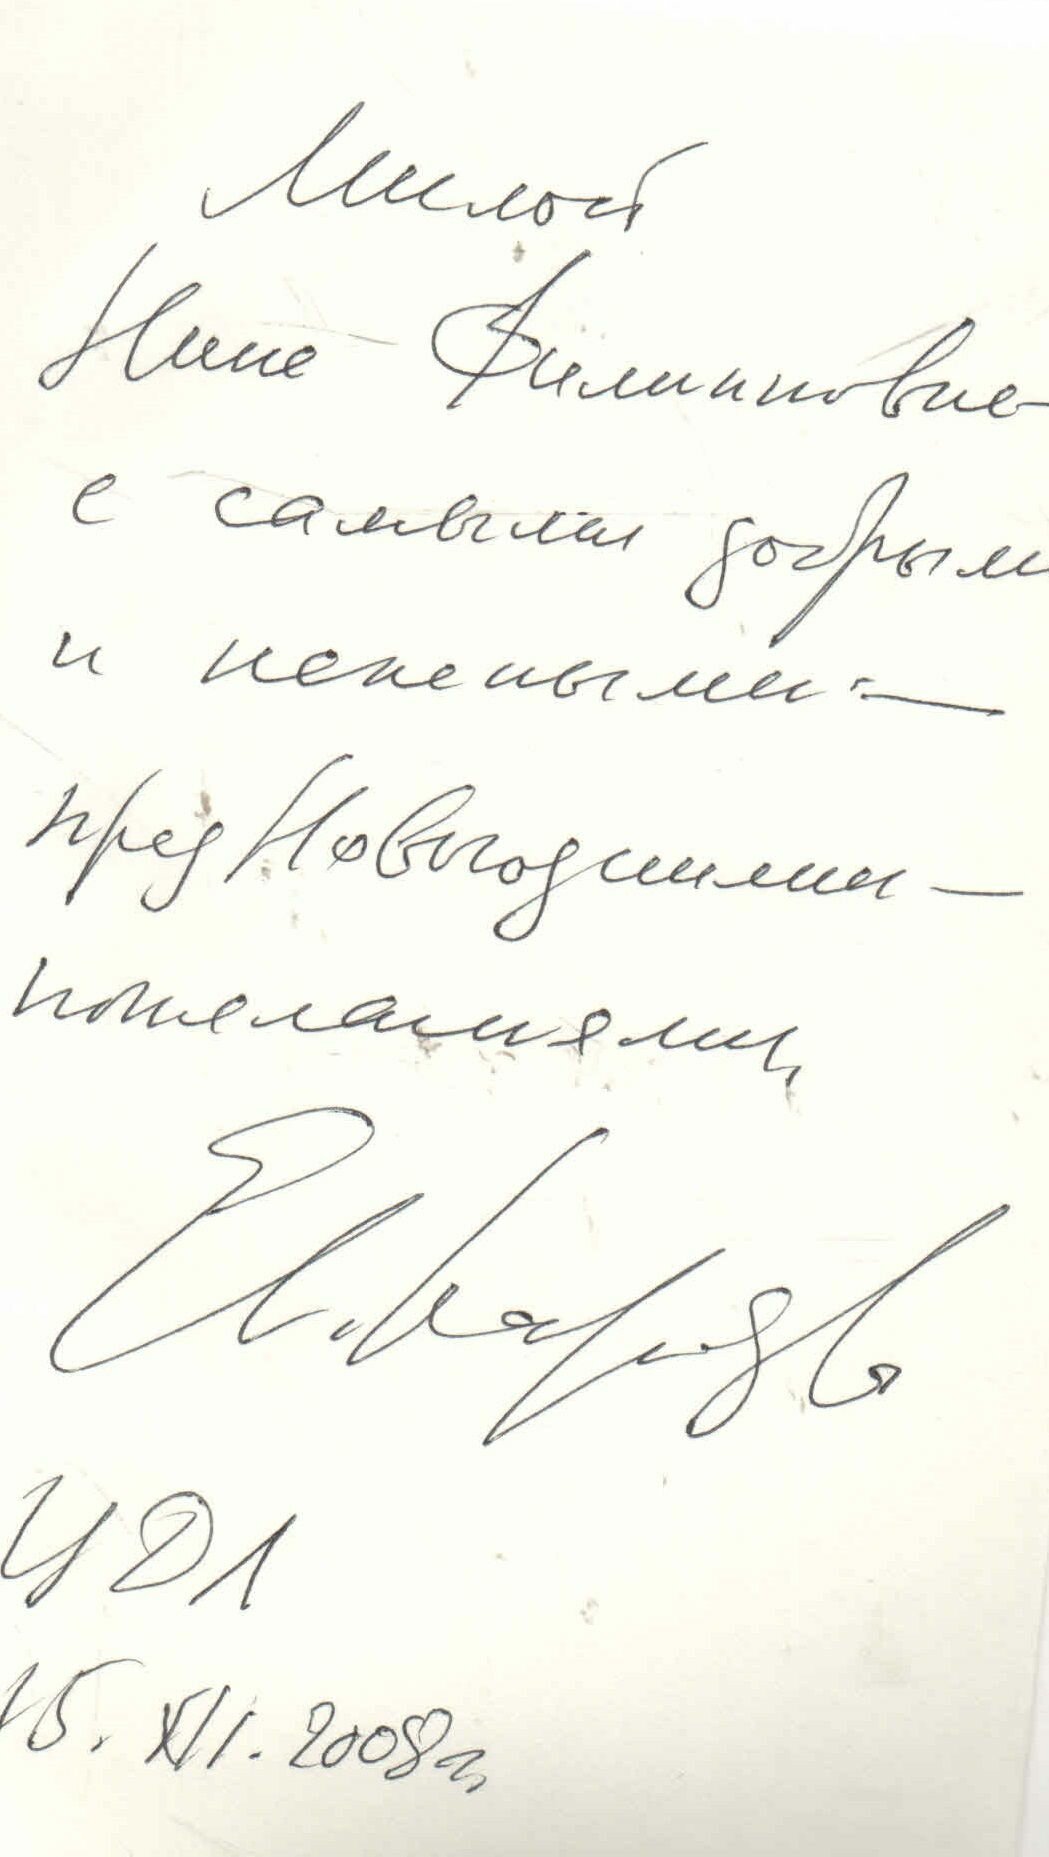 Милой
Нине Филипповне
с самыми добрым
и нежными –
предНовогодними –
пожеланиями,
Ев.
ЦДЛ
15. XII. 2008 г.